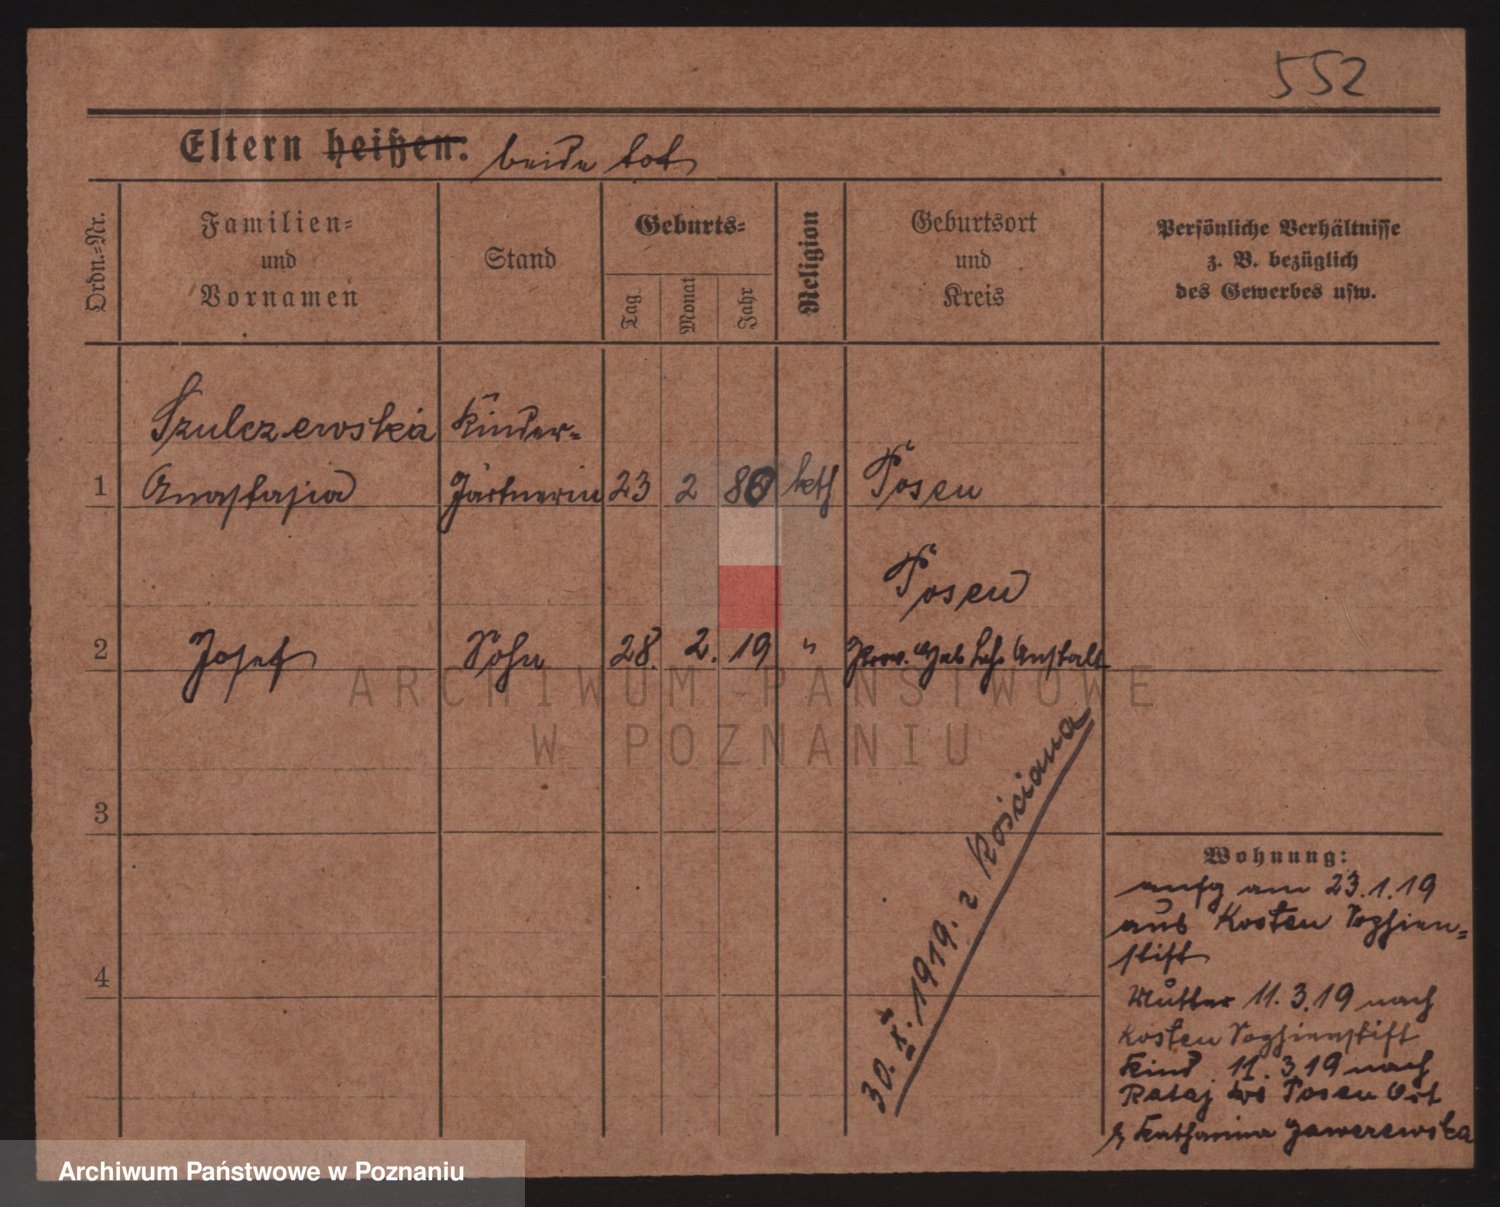 552
Eltern heißen: beide tot
Ordn.=Nr.
Familien=
und
Vornamen
Stand
Geburts=
Tag
Monat
Jahr
Religion
Geburtsort
und
Kreis
Persönliche Verhältnisse
z. B. bezüglich
des Gewerbes usw.
Szulczewska Kinder-
1 Anastasia Gärtnerin 23 2 80 kath Posen
Posen
2 Josef Sohn 28. 2. 19 " Prov. Heb Lehr Anstalt
3
4
30. X. 1919. z Kościana
Wohnung:
aufg am 23.1.19
aus Kosten Sophien=
stift
Mutter 11.3.19 nach
Kosten Sophienstift
Kind 11.3.19 nach
Rataj Posen Ost
Katharina
ARCHIWUM PAŃSTWOWE
W POZNANIU
Archiwum Państwowe w Poznaniu